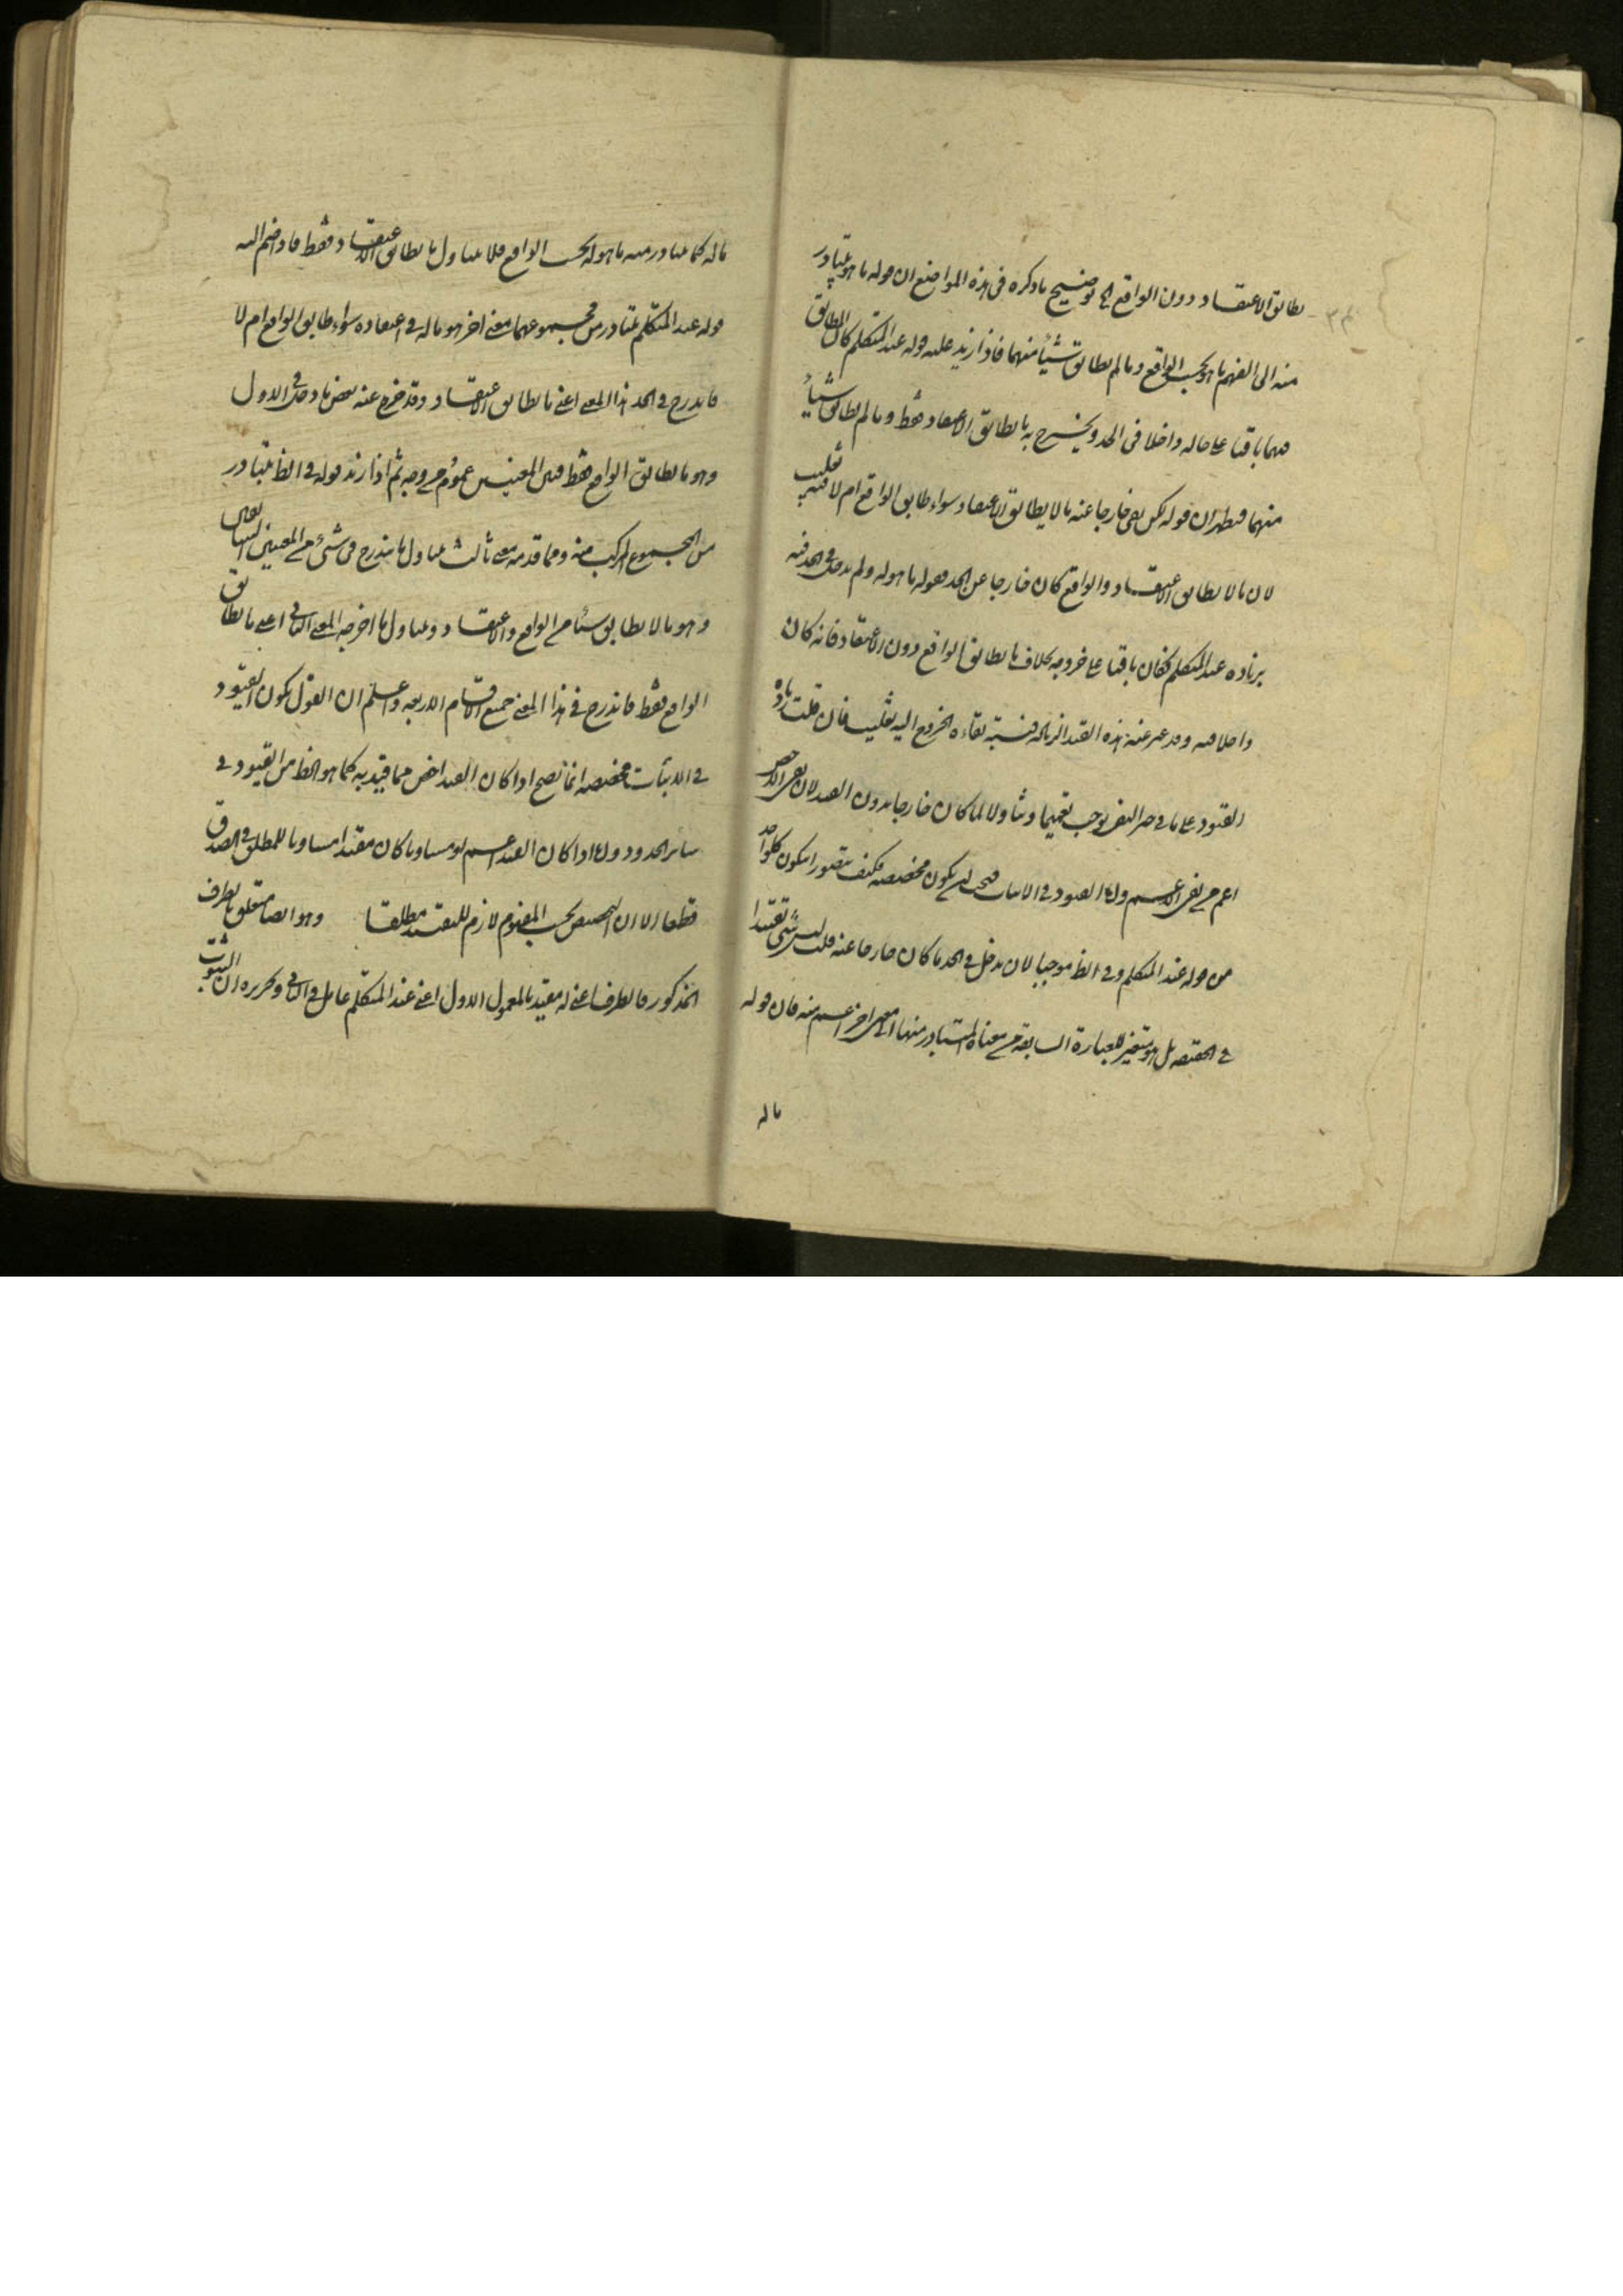 يطابق الاعتقاد دون الواقع الخ توضيح ما ذكره في هذه المواضع ان قوله ما هو له يتبادر
منه الى الفهم ما هو له بحسب الواقع وما لم يطابق شيئا منهما فاذا زيد عليه قوله عند المتكلم كان المطابق
لهما باقيا على حاله داخلا في الحد ويخرج به ما يطابق الاعتقاد فقط وما لم يطابق شيئا
منهما فظهر ان قوله لكن بقي خارجا عنه ما لا يطابق الاعتقاد سواء طابق الواقع ام لا فيه تغليب
لان ما لا يطابق الاعتقاد والواقع كان خارجا عن الحد بقوله ما هو له ولم يدخل في الحد فيه
بزيادة عند المتكلم فكان باقيا على خروجه بخلاف ما يطابق الواقع دون الاعتقاد فانه كان
داخلا فيه وقد خرج عنه بهذه القيد الزيادة فنسبة بقاء الخروج اليه تغليب فان قلت زيادة
القيود على ما في حيز النفي يوجب تعميما وتناولا لما كان خارجا بدون القيد لان نفي الاخص
اعم من نفي الاعم واما القيود في الاثبات فيجب ان يكون مخصصة فكيف يتصور ان يكون كل واحد
من قوله عند المتكلم وفي الظ موجبا لان يدخل في الحد ما كان خارجا عنه قلت ليس شئ تقييدا
في الحقيقة بل هو تغيير للعبارة السابقة من معناه المتبادر منها الى معنى اخر اعم منه فان قوله
ما له
ما له كما يتبادر منه ما هو له بحسب الواقع فلا يتناول ما يطابق الاعتقاد فقط فاذا ضم اليه
قوله عند المتكلم يتبادر من مجموعهما معنى اخر هو ما له في اعتقاده سواء طابق الواقع ام لا
فاندرج في الحد هذا المعنى اعني ما يطابق الاعتقاد وقد خرج عنه بعض ما دخل في الاول
وهو ما يطابق الواقع فقط فبين المعنيين عموم من وجه ثم اذا زيد قوله في الظ يتبادر
من المجموع المركب منه ومما قدمه معنى ثالث يتناول ما يندرج في شئ من المعنيين السابقين
وهو ما لا يطابق شيئا من الواقع والاعتقاد ويتناول ما اخرجه المعنى الثاني اعني ما يطابق
الواقع فقط فاندرج في هذا المعنى جميع الاقسام الاربعة واعلم ان القول بكون القيود
في الاثبات مخصصة انما تصح اذا كان القيد اخص مما قيد به كما هو الظ من القيود في
سائر الحدود واما اذا كان القيد اعم او مساويا كان مقيدا مساويا للمطلق في الصدق
قطعا الا ان التخصيص بحسب المفهوم لازم للتقييد مطلقا وهو ايضا متعلق بالظرف
المذكور فالظرف اعني له مقيد بالمعمول الاول اعني عند المتكلم عامل في الثاني وتحريره ان الثبوت